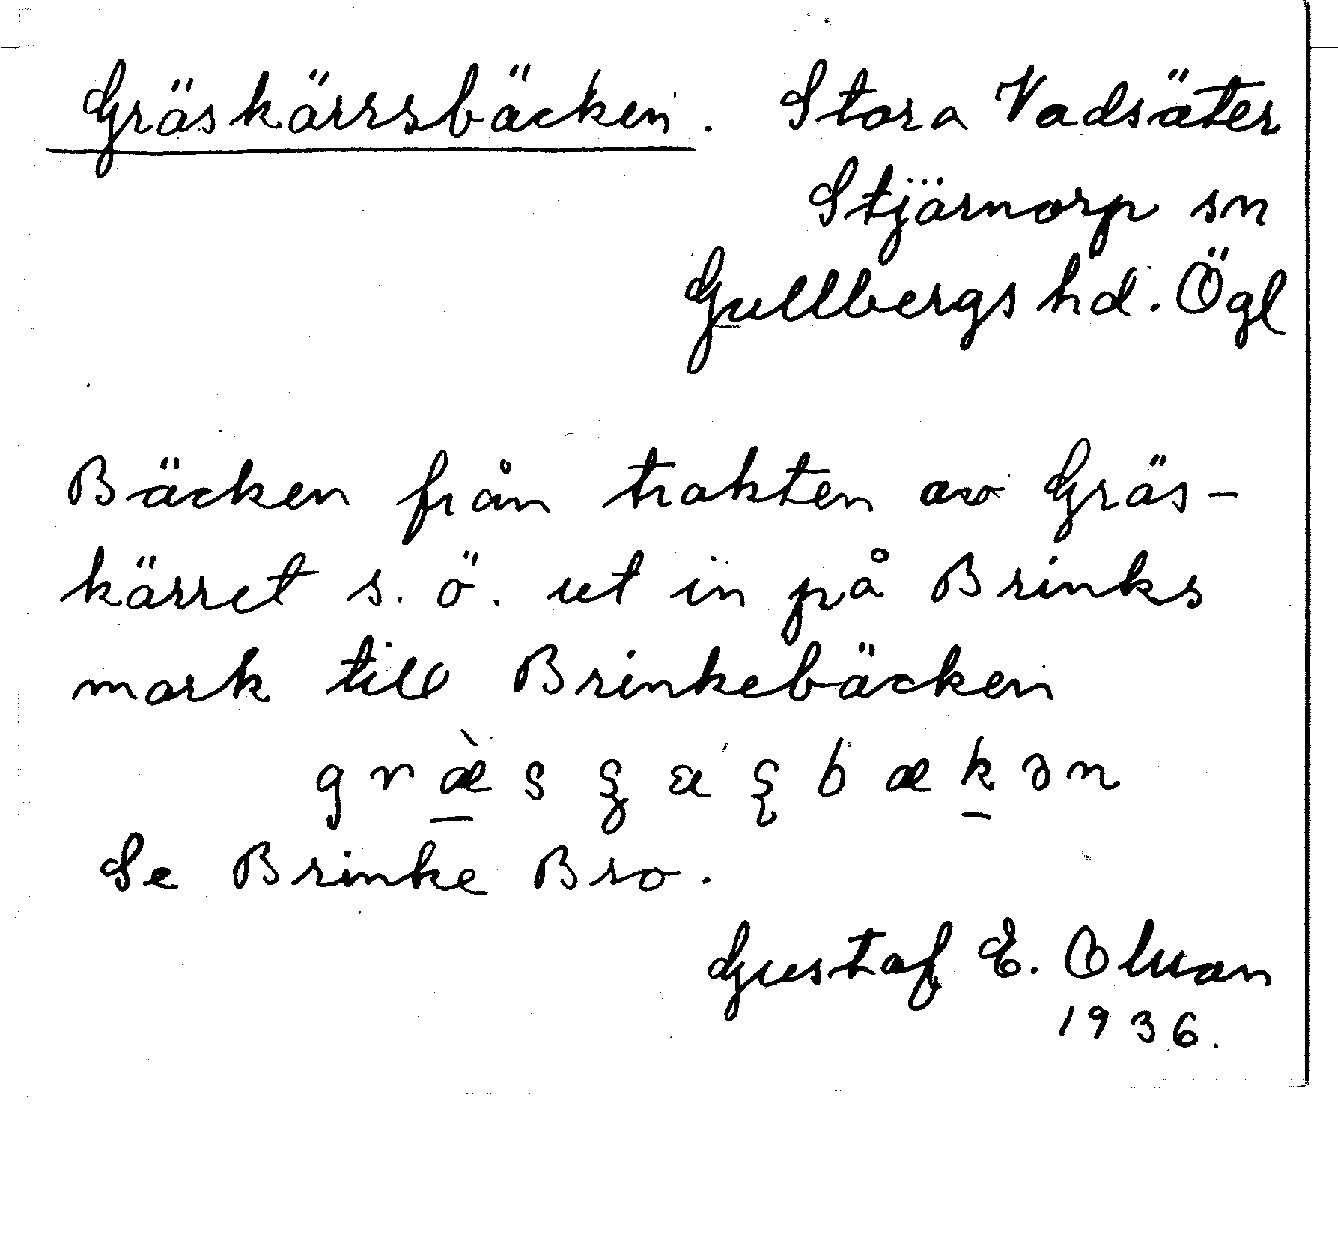 Gräskärrsbäcken. Stora Vadsäter
Stjärnorp sn
Gullbergs hd. Ögl
Bäcken från trakten av Gräs-
kärret s. ö. ut in på Brinks
mark till Brinkebäcken
Se Brinke Bro.
Gustaf E. Olsson
1936.